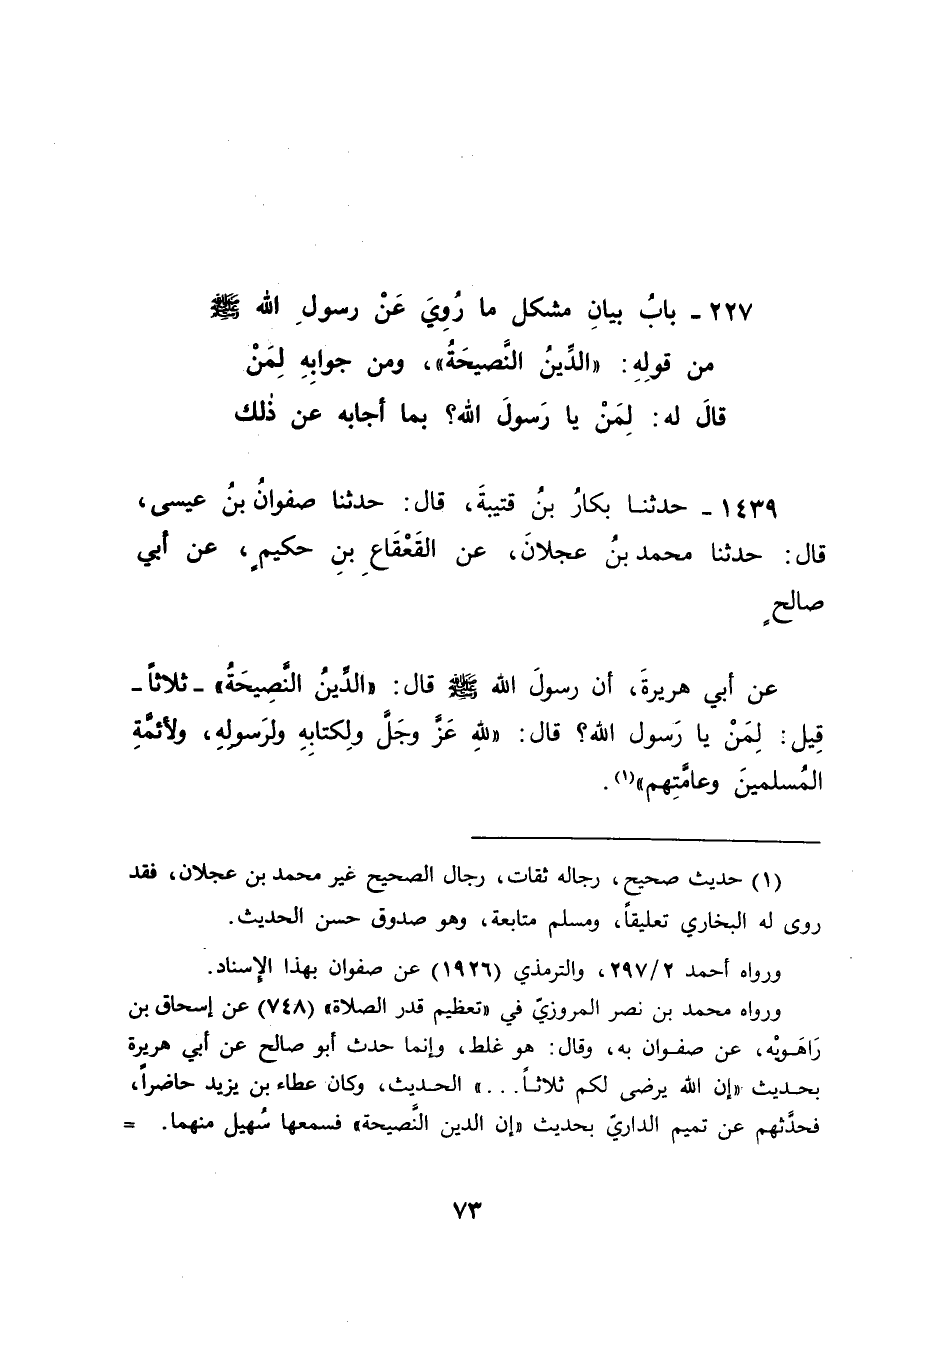 ٢٢٧ ـ بابُ بيانِ مشكل ما رُوِيَ عَنْ رسولِ الله ﷺ
من قولِهِ: «الدِّينُ النَّصيحَةُ»، ومن جوابِهِ لِمَنْ
قالَ له: لِمَنْ يا رَسولَ الله؟ بما أجابه عن ذٰلك
١٤٣٩ ـ حدثنا بكارُ بنُ قتيبةَ، قال: حدثنا صفوانُ بنُ عيسى،
قال: حدثنا محمد بنُ عجلانَ، عن القَعْقَاعِ بنِ حكيمٍ، عن أبي
صالحٍ
عن أبي هريرةَ، أن رسولَ الله ﷺ قال: «الدِّينُ النَّصِيحَةُ» ـ ثلاثاً ـ
قِيل: لِمَنْ يا رَسول الله؟ قال: «للهِ عَزَّ وجَلَّ ولِكتابِهِ ولرَسولِهِ، ولأئمَّةِ
المُسلمينَ وعامَّتِهم»(١).
(١) حديث صحيح، رجاله ثقات، رجال الصحيح غير محمد بن عجلان، فقد
روى له البخاري تعليقاً، ومسلم متابعة، وهو صدوق حسن الحديث.
ورواه أحمد ٢٩٧/٢، والترمذي (١٩٢٦) عن صفوان بهذا الإسناد.
ورواه محمد بن نصر المروزيّ في «تعظيم قدر الصلاة» (٧٤٨) عن إسحاق بن
رَاهَويْه، عن صفوان به، وقال: هو غلط، وإنما حدث أبو صالح عن أبي هريرة
بحديث «إن الله يرضى لكم ثلاثاً...» الحديث، وكان عطاء بن يزيد حاضراً،
فحدَّثهم عن تميم الداريّ بحديث «إن الدين النَّصيحة» فسمعها سُهيل منهما. =
٧٣